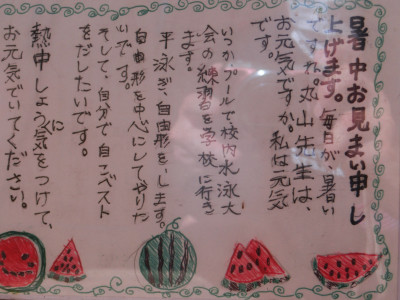 暑中お見まい申し
上げます。毎日が、暑い
ですね。丸山先生は、
お元気ですか。私は元気
です。
いつかプールで校内水泳大
会の練習を学校に行き
ます。
平泳ぎ、自由形を、します。
自由形を中心にしてやりた
いです。
そして、自分で自こベスト
をだしたいです。
熱中しょう気をつけて、
に
お元気でいてください。